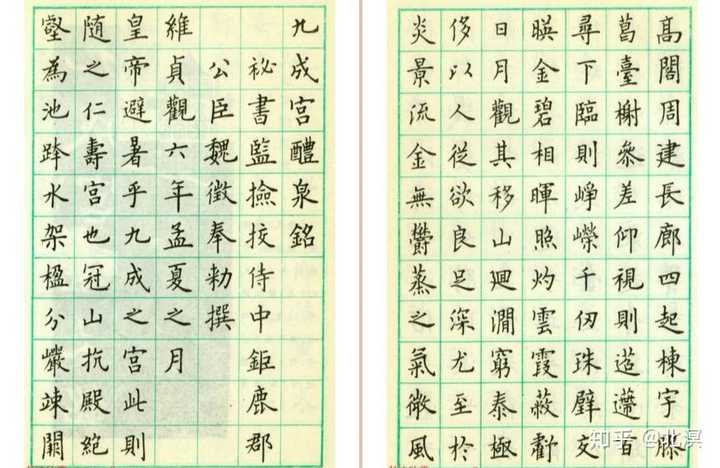 九成宫醴泉銘
秘書監撿挍侍中鉅鹿郡
公臣魏徵奉勅撰
維貞觀六年孟夏之月
皇帝避暑乎九成之宫此則
随之仁壽宫也冠山抗殿絶
壑為池跨水架楹分巖竦闕
髙閣周建長廊四起棟宇膠
葛臺榭叅差仰視則迢遰百
尋下臨則崢嶸千仞珠璧交
暎金碧相暉照灼雲霞蔽虧
日月觀其移山廻澗窮泰極
侈以人從欲良足深尤至於
炎景流金無鬱蒸之氣微風
知乎 @北溟